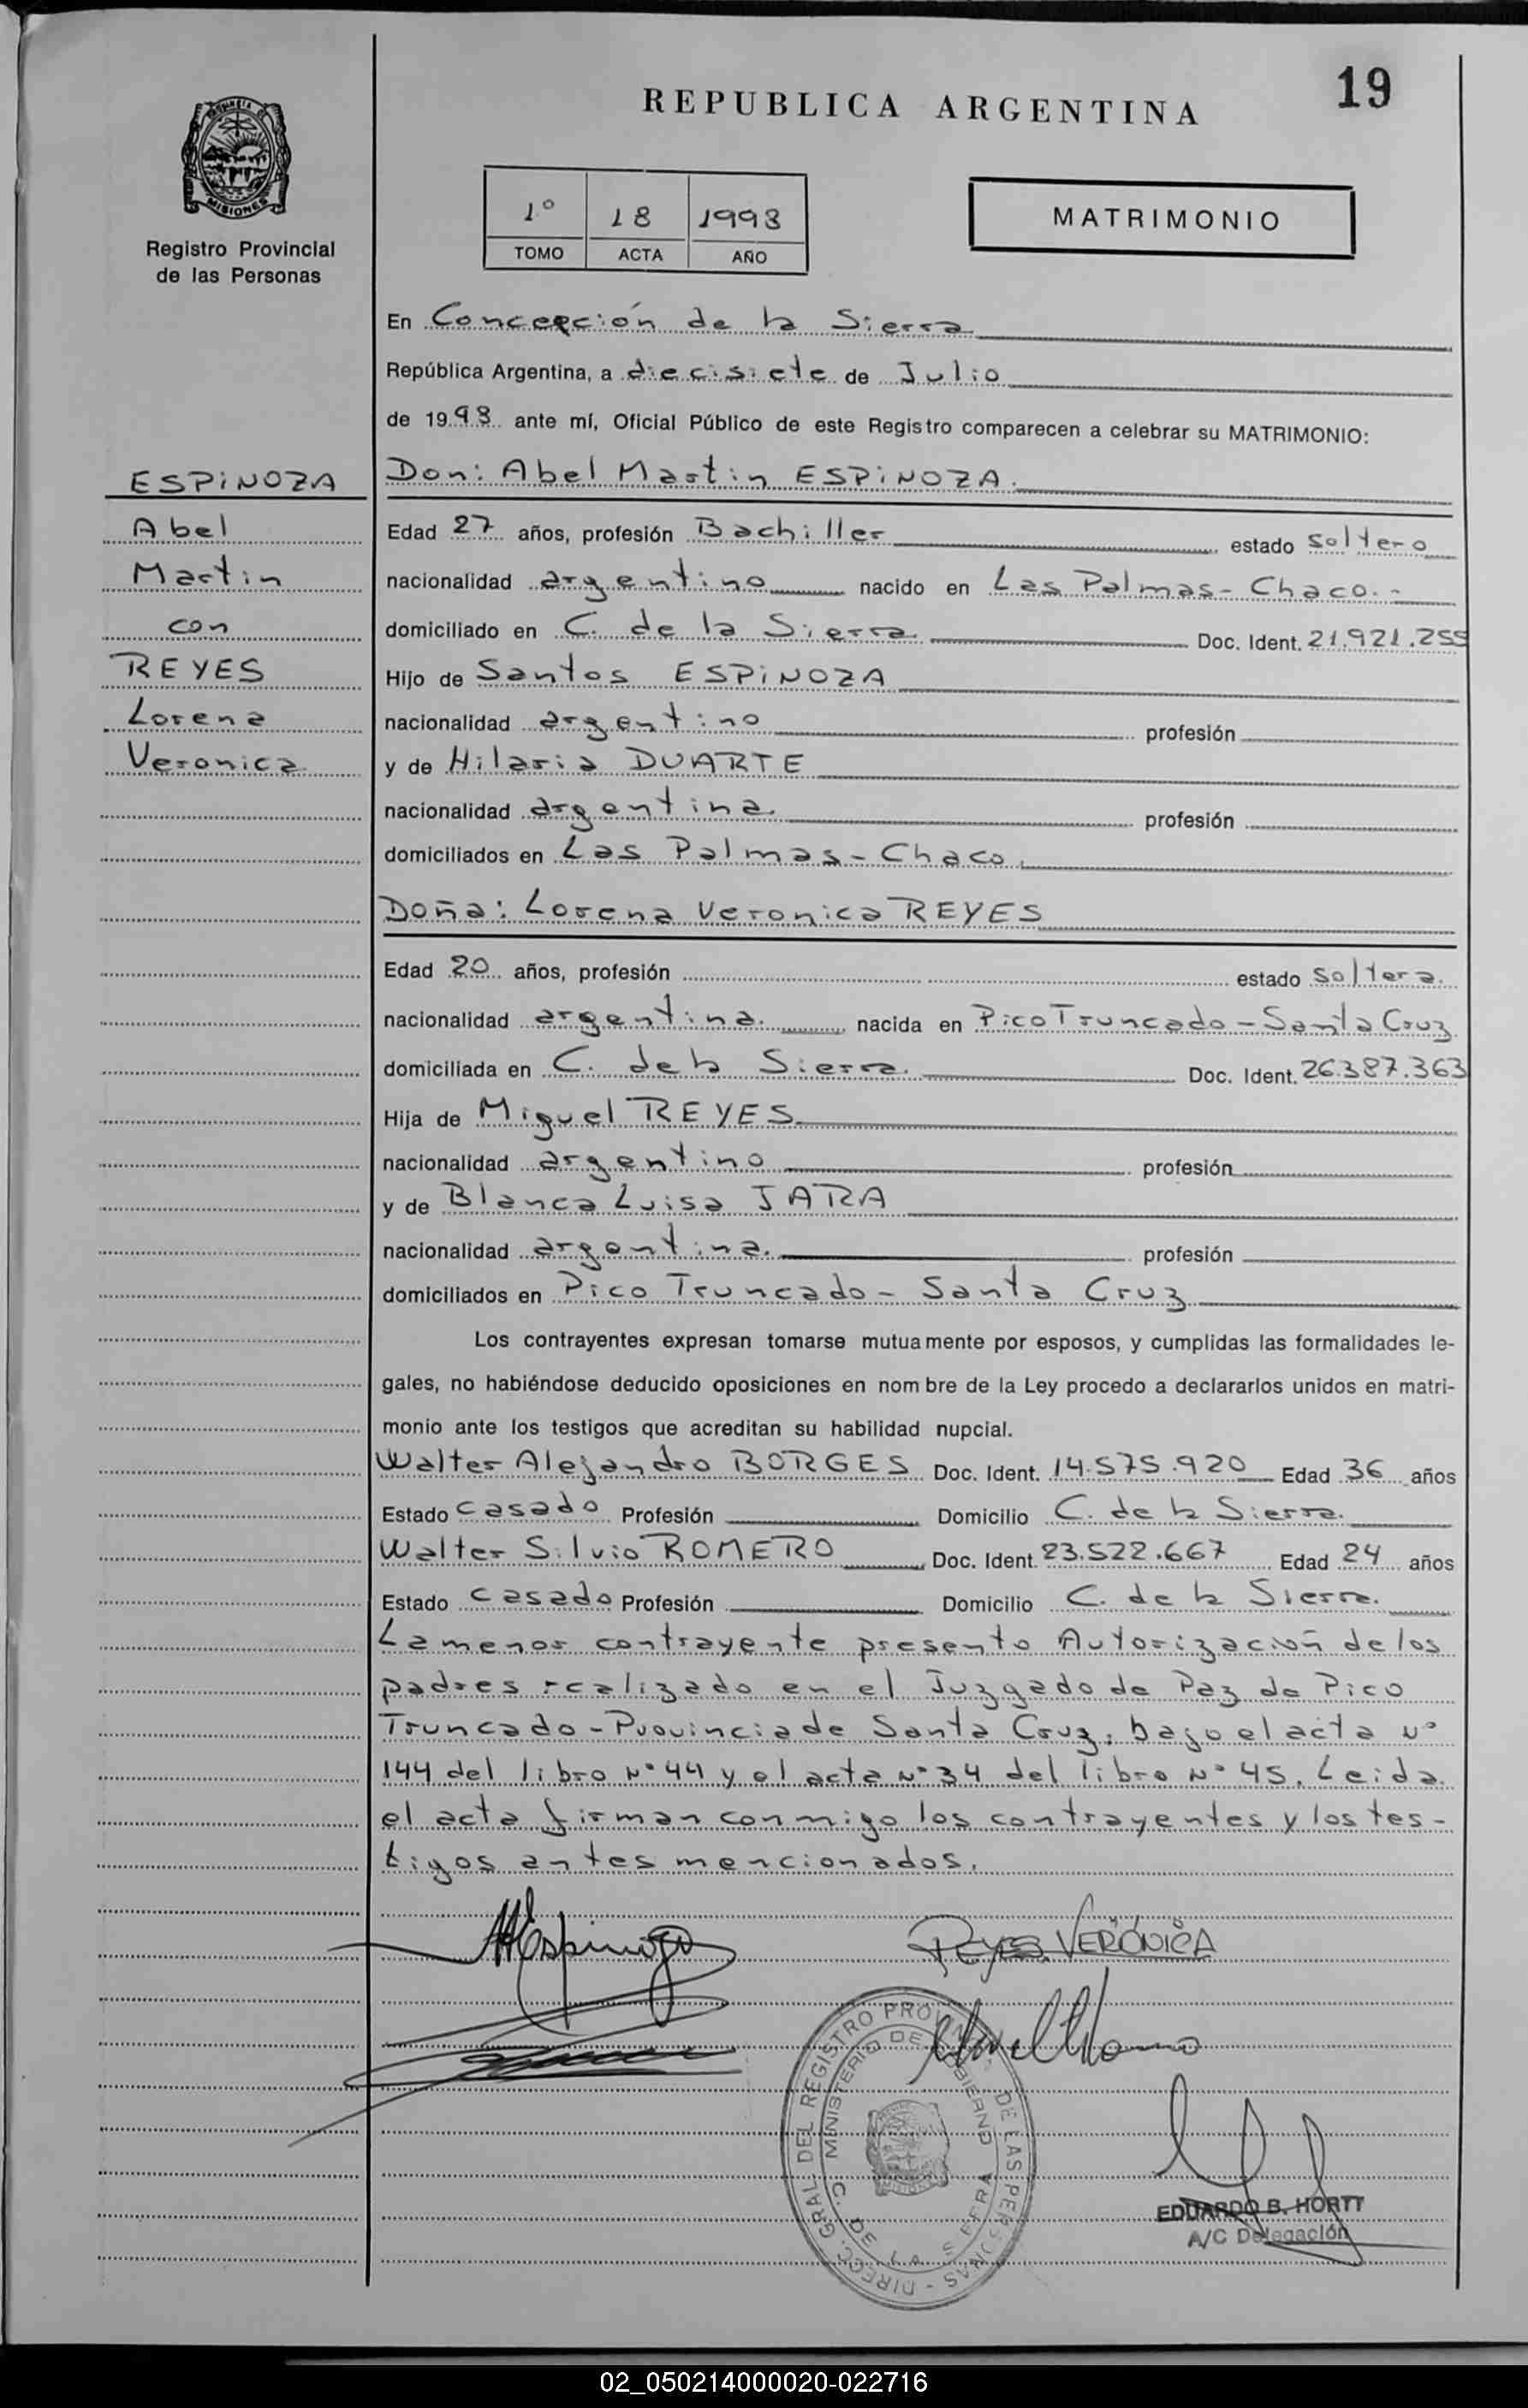 19
REPUBLICA ARGENTINA
MISIONES
Registro Provincial
de las Personas
1º 18 1998
TOMO ACTA AÑO
MATRIMONIO
En Concepción de la Sierra
República Argentina, a diecisiete de Julio
de 1998 ante mí, Oficial Público de este Registro comparecen a celebrar su MATRIMONIO:
ESPINOZA
Abel
Martin
con
REYES
Lorena
Veronica
Don: Abel Martin ESPINOZA.
Edad 27 años, profesión Bachiller estado soltero
nacionalidad argentino nacido en Las Palmas - Chaco.-
domiciliado en C. de la Sierra Doc. Ident. 21.921.255
Hijo de Santos ESPINOZA
nacionalidad argentino profesión
y de Hilaria DUARTE
nacionalidad argentina. profesión
domiciliados en Las Palmas - Chaco.
Doña: Lorena Veronica REYES
Edad 20 años, profesión estado soltera.
nacionalidad argentina. nacida en Pico Truncado - Santa Cruz
domiciliada en C. de la Sierra. Doc. Ident. 26.387.363
Hija de Miguel REYES
nacionalidad argentino profesión
y de Blanca Luisa JARA
nacionalidad argentina. profesión
domiciliados en Pico Truncado - Santa Cruz
Los contrayentes expresan tomarse mutuamente por esposos, y cumplidas las formalidades le-
gales, no habiéndose deducido oposiciones en nombre de la Ley procedo a declararlos unidos en matri-
monio ante los testigos que acreditan su habilidad nupcial.
Walter Alejandro BORGES Doc. Ident. 14.575.920 Edad 36 años
Estado casado Profesión Domicilio C. de la Sierra.
Walter Silvio ROMERO Doc. Ident. 23.522.667 Edad 24 años
Estado casado Profesión Domicilio C. de la Sierra.
La menor contrayente presento Autorización de los
padres realizado en el Juzgado de Paz de Pico
Truncado - Provincia de Santa Cruz, bajo el acta Nº
144 del libro Nº 44 y el acta Nº 34 del libro Nº 45. Leida
el acta firman conmigo los contrayentes y los tes-
tigos antes mencionados.
Espinoza
REYES VERÓNICA
DIRECC. GRAL. DEL REGISTRO PROVIN. DE LAS PERSONAS
MINISTERIO DE GOBIERNO
C. DE LA SIERRA
EDUARDO B. HORTT
A/C Delegación
02_050214000020-022716